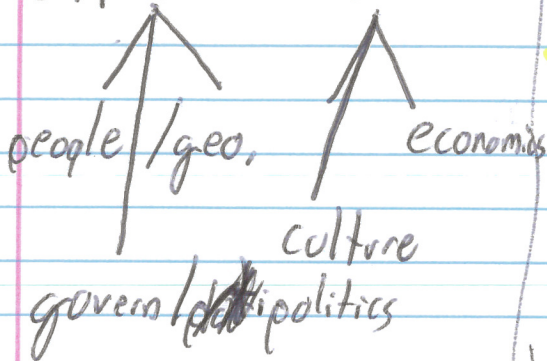 people /geo.
economics
culture
govern/politics